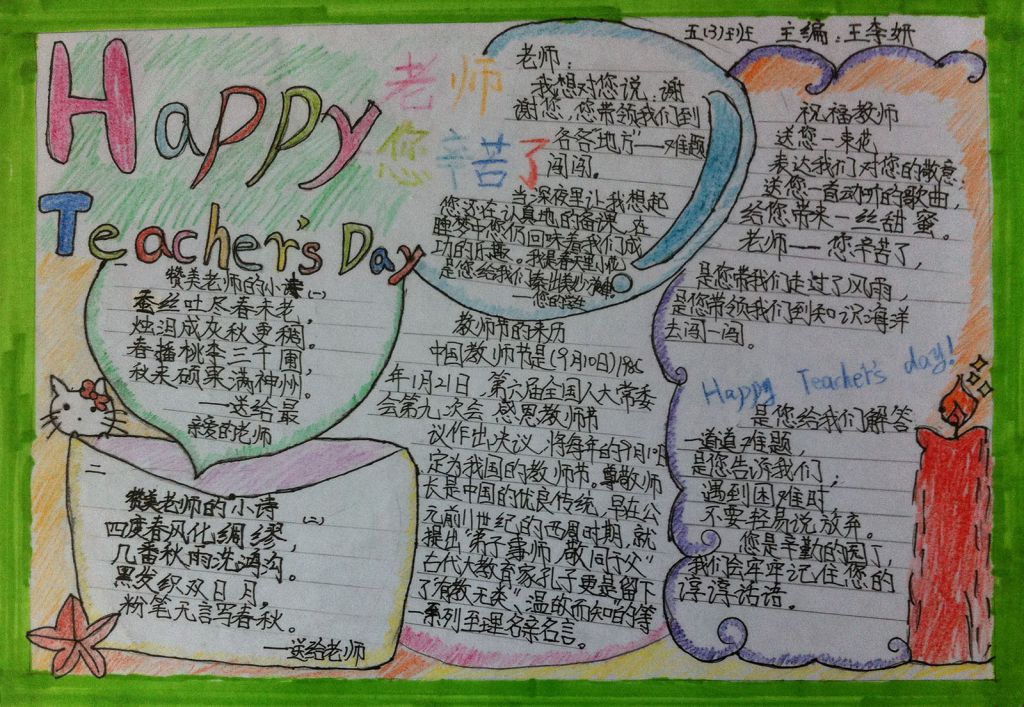 Happy
Teacher's Day
老师
您辛苦了
五(3)班 主编:王李妍
老师:
我想对您说:谢
谢您,您带领我们到
各各“地方”——难题
闯闯。
当深夜里让我想起
您还在认真地的备课,在
睡梦中您仍回味着我们成
功的乐趣。我是春天里小花,
是您给我们
——您的学生
赞美老师的小诗(一)
蚕丝吐尽春未老,
烛泪成灰秋更稠。
春播桃李三千圃,
秋来硕果满神州。
——送给最
亲爱的老师
二
赞美老师的小诗(二)
四度春风化绸缪,
几番秋雨洗鸿沟。
黑发织双日月,
粉笔无言写春秋。
——送给老师
教师节的来历
中国教师节是(9月10日)198
年1月21日,第六届全国人大常委
会第九次会.感恩教师节
议作出决议,将每年的9月10日
定为我国的教师节。尊敬师
长是中国的优良传统,早在公
元前11世纪的西周时期,就
提出“弟子事师,敬同于父”
古代大教育家孔子更是留下
了“有教无类”、温故而知的等
一系列至理名亲名言。
祝福教师
送您一束花
表达我们对您的敬意;
送您一首动听的歌曲,
给您带来一丝甜蜜。
老师——您辛苦了,
是您带我们走过了风雨,
是您带领我们到知识海洋
去闯一闯。
Happy Teacher's day!
是您给我们解答
一道道难题,
是您告诉我们,
遇到困难时,
不要轻易说放弃。
您是辛勤的园丁,
我们会牢牢记住您的
淳淳话语。